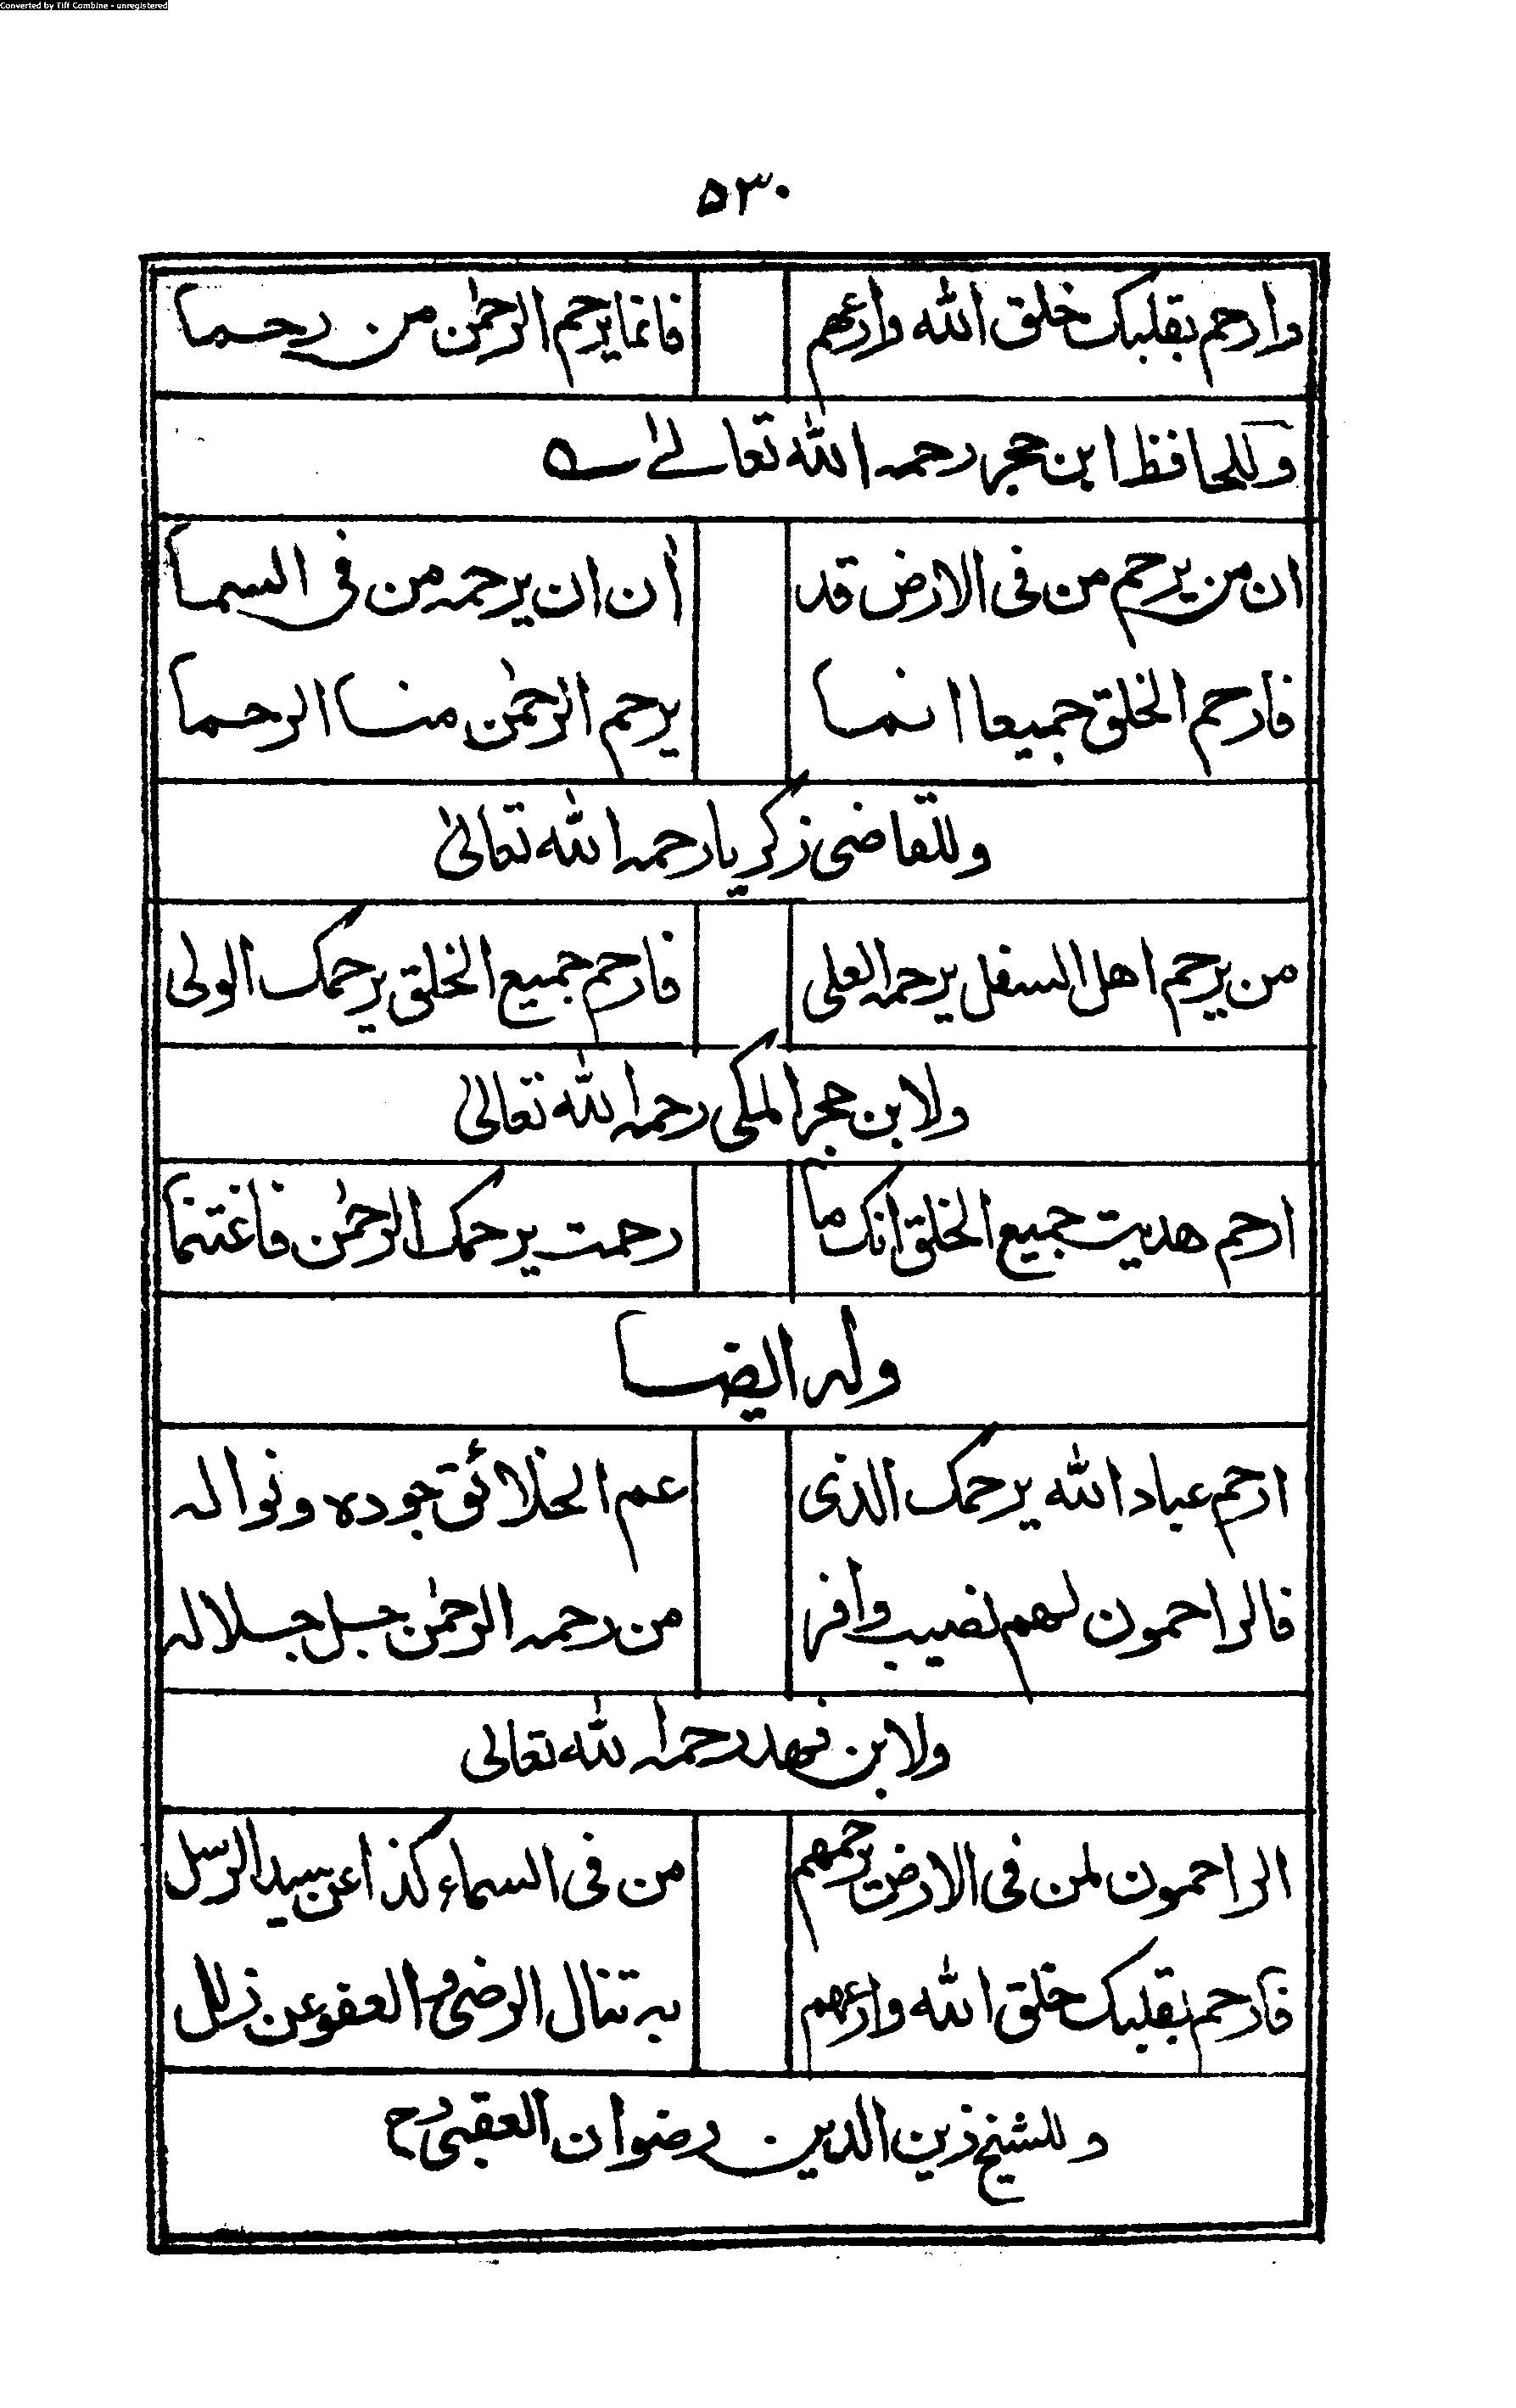 Converted by Tiff Combine - unregistered
۵۳۰
وارحم بقلبك خلق الله وارعهم فانما يرحم الرحمٰن من رحما
وللحافظ ابن حجر رحمه الله تعالےٰ ے
ان من يرحم من فى الارض قد أٰن ان يرحمه من فى السما
فارحم الخلق جميعا انما يرحم الرحمٰن منا الرحما
وللقاضى زكريا رحمه الله تعالىٰ
من يرحم اهل السفل يرحمه العلى فارحم جميع الخلق يرحمك الولى
ولابن حجر المكى رحمه الله تعالى
ارحم هديت جميع الخلق انك ما رحمت يرحمك الرحمٰن فاغتنما
وله ايضا
ارحم عباد الله يرحمك الذى عم الخلائق جوده ونواله
فالراحمون لهم نصيب وافر من رحمه الرحمٰن جل جلاله
ولابن فهد رحمه الله تعالى
الراحمون لمن فى الارض يرحمهم من فى السماء كذا عن سيد الرسل
فارحم بقلبك خلق الله وارعهم به تنال الرضى والعفو عن زلل
وللشيخ زين الدين رضوان العقبى رح